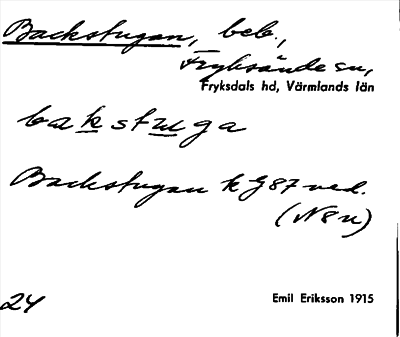 Backstugan, beb.,
Fryksände sn,
Fryksdals hd, Värmlands län
bakstuga
Backstugan k J 87 ved.
(N 8 u)
24
Emil Eriksson 1915